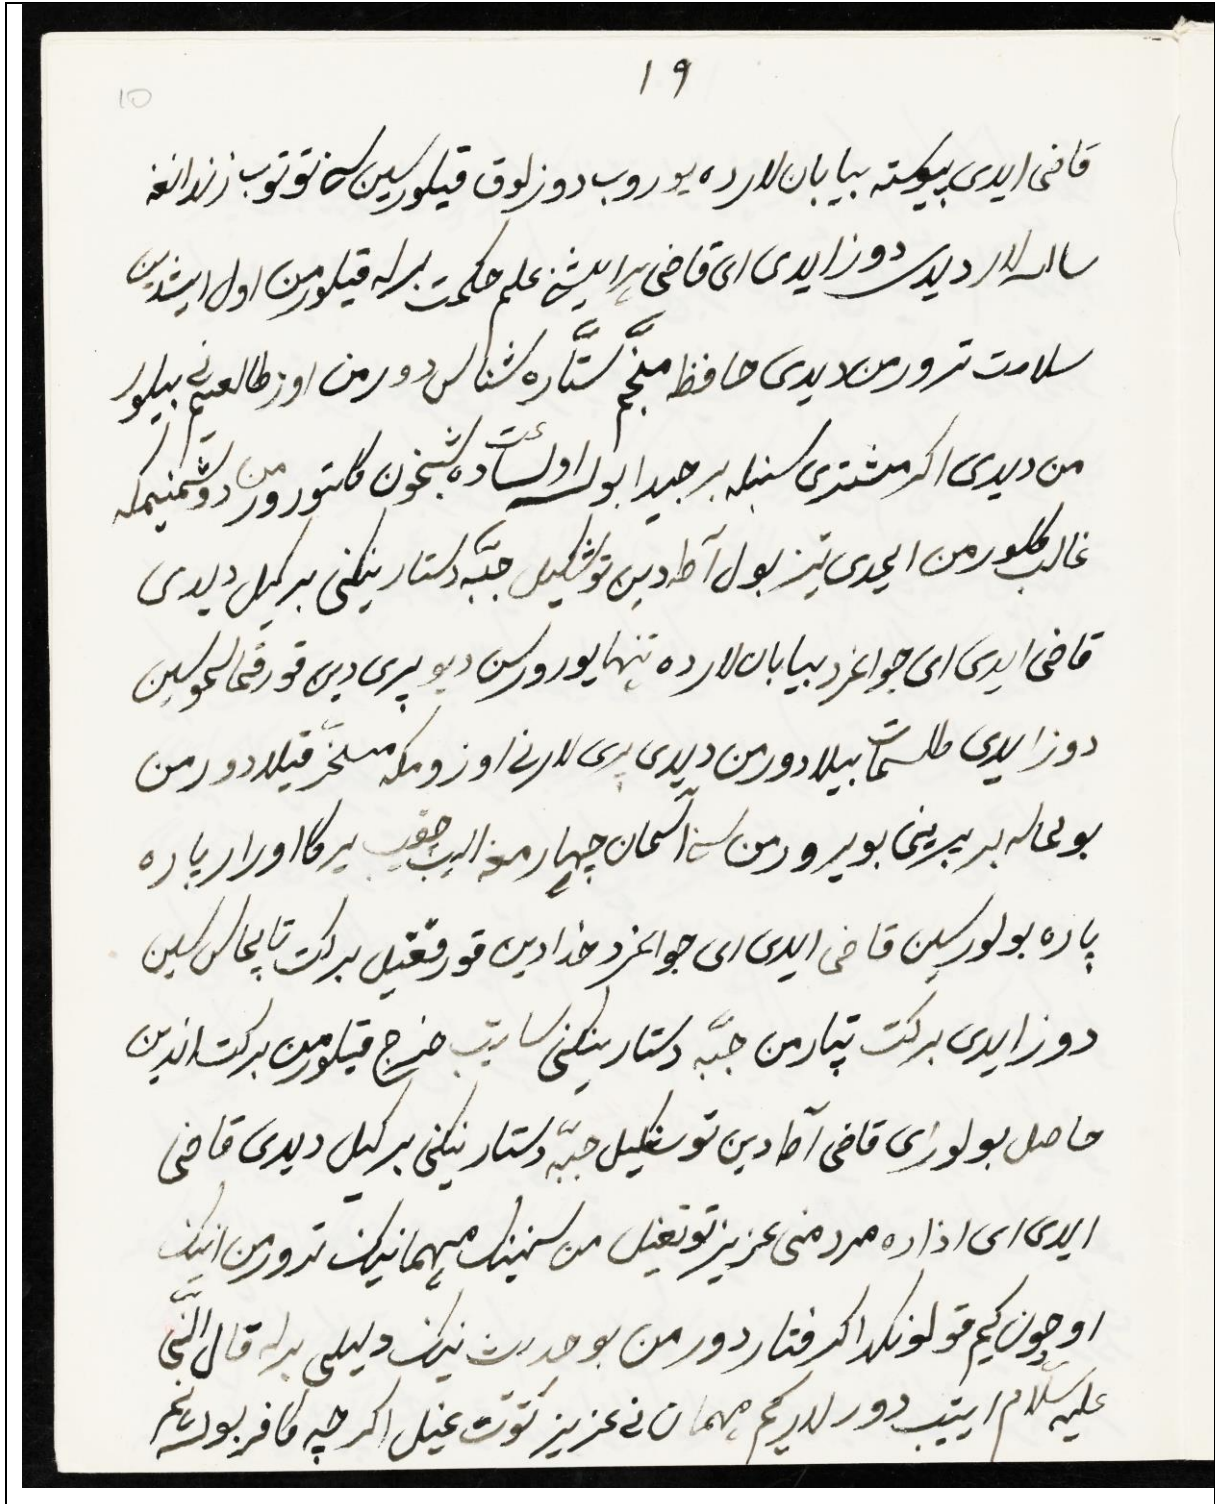 ١٩
10
قاضی ایدی پیوسته بیابان لارده یوروب دوزلوق قیلورسین سنی توتوب زندانغه
سالسه لار دیدی دوز ایدی ای قاضی هر ایشنی علم حکمت برله قیلورمن اول ایشدین
سلامت تورورمن دیدی حافظ منجّم ستّاره شناس دورمن اوز طالعیمنی بیلور
من دیدی اکر مشتری سنبله برجیدا بولسه اول ساعت ده شبخون کلتورورمن دوشمنیمکه
غالب کلورمن ایمدی تیز بول آطدین توشکیل جبّه دستارینکنی برکیل دیدی
قاضی ایدی ای جوانمرد بیابان لارده تنها یورورسن دیو پری دین قورقمالموسین
دوز ایدی طلسمات بیلادورمن دیدی پری لارنی اوزومکه مسخّر قیلادورمن
بولماسه بر بیرینی بویرورمن سنی آسمان چهارمغه الیب چقیب یرکا اورار پاره
پاره بولورسین قاضی ایدی ای جوانمرد خدادین قورققیل برکت تاپماس سین
دوز ایدی برکت تپارمن جبّه دستارینکنی ساتیب خرج قیلورمن برکت اندین
حاصل بولور ای قاضی آطدین توشکیل جبّه دستارینکنی برکیل دیدی قاضی
ایدی ای اذاده مرد منی عزیز توتغیل من سنینک مهمانینک تورورمن انینک
اوچون کیم قولونکدا کرفتار دورمن بو حدیث نینک دلیلی برله قال النّبی
علیه سلّام ایتیب دورلار کیم مهمان نی عزیز توتغیل اکرچه کافر بولسه هم